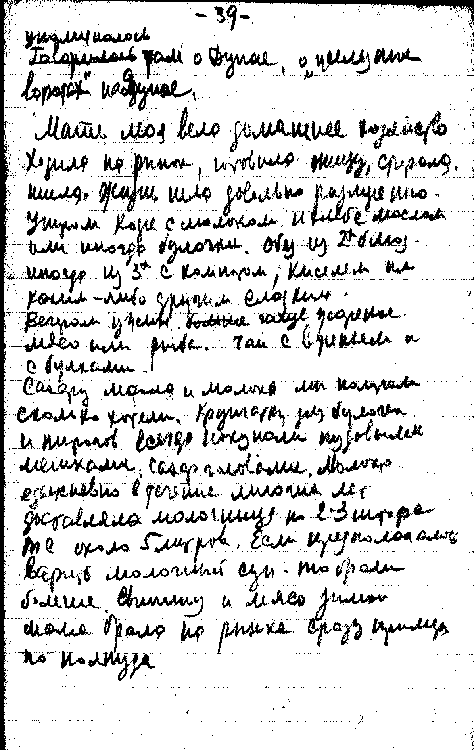 - 39 -
упоминалось
Говорилось там о Дунае, о „железных
воротах" на Дунае.
Мать моя вела домашнее хозяйство
Ходила на рынок, готовила пищу, стирала,
шила. Жизнь шла довольно размеренно.
Утром кофе с молоком и хлебом с маслом
или иногда булочки. Обед из 2х блюд
иногда из 3х с компотом, киселем или
каким-либо другим сладким.
Вечером ужин жареное
мясо или рыба. Чай с вареньем и
с булками.
Сахару масла и молока мы получали
сколько хотели. Крупчатку для булочек
и пирогов всегда покупали пудовыми
мешками, сахар головами. Молоко
ежедневно в течение многих лет
доставляла молочница по 2-3 штофа
те около 5 литров. Если предполагалось
варить молочный суп - то брали
больше. Свинину и мясо зимой
мама брала на рынке сразу
по полпуда